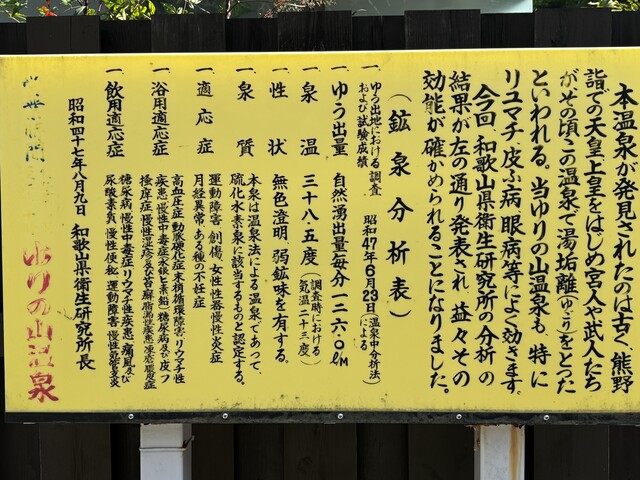 本温泉が発見されたのは古く、熊野
詣での天皇、上皇をはじめ宮人や武人たち
がその頃この温泉で湯垢離(ゆごり)をとった
といわれる。当ゆりの山温泉も、特に
リュマチ、皮ふ病、眼病等によく効きます。
今回、和歌山県衛生研究所の分析の
結果が左の通り発表され、益々その
効能が確かめられることになりました。
(鉱泉分析表)
一、ゆう出地における調査および試験成績 昭和47年6月23日(温泉中分析法)による
一、ゆう出量 自然湧出量毎分一二六・〇ℓ/M
一、泉温 三十八・五度(調査時における気温二十三度)
一、性状 無色澄明、弱鉱味を有する。
一、泉質 本泉は温泉法による温泉であって、
硫化水素泉に該当するものと認定する。
一、適応症 運動障害、創傷、女性性器慢性炎症
月経異常、ある種の不妊症
一、浴用適応症 高血圧症、動脈硬化症、末梢循環障害、リウマチ性
疾患、慢性中毒症、糖尿病及び皮フ
掻痒症、慢性湿疹及び苔癬
一、飲用適応症 糖尿病、慢性中毒症、リウマチ性疾患、痛風及び
尿酸素負、慢性便秘、運動障害、慢性気管支炎
昭和四十七年八月九日 和歌山県衛生研究所長
ゆりの山温泉